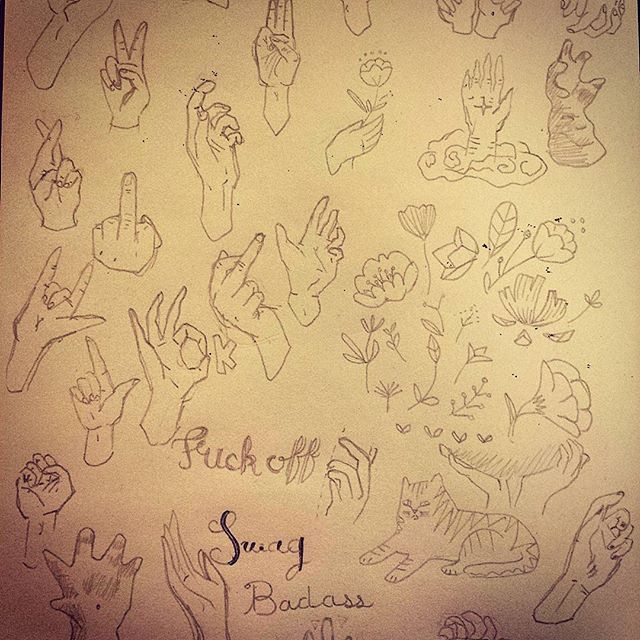 OK
Fuck off
Swag
Badass